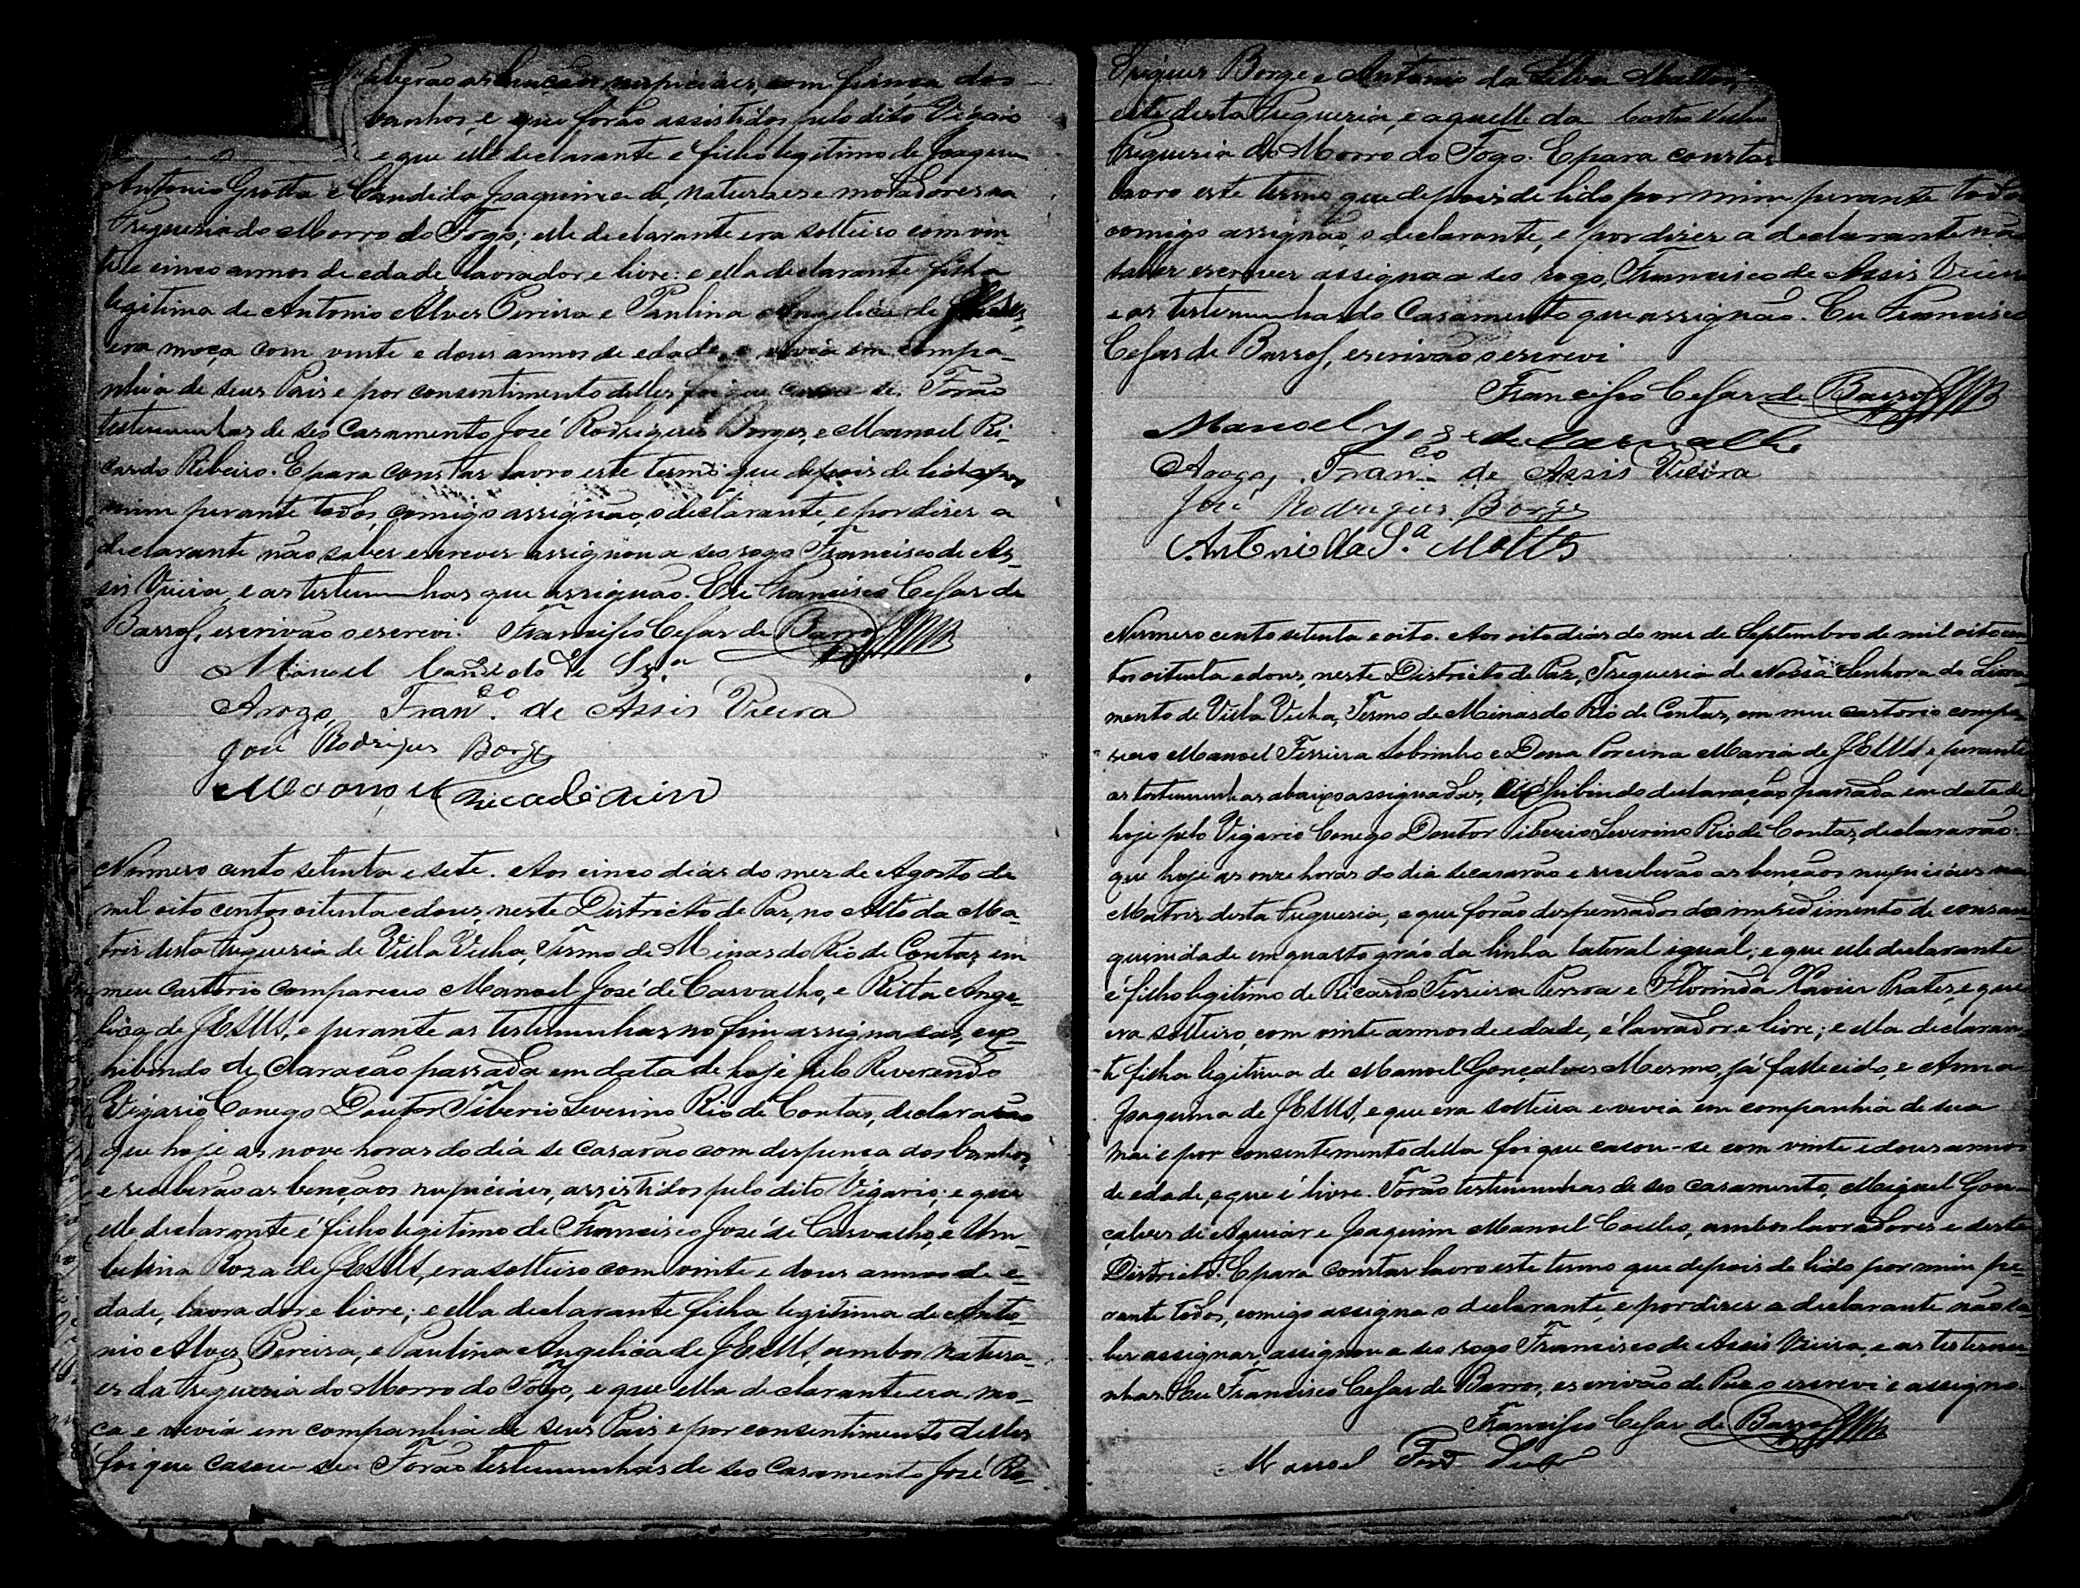 ceberão as bençãos nupciaes, com fiança dos
banhos, e que forão assistidos pelo dito Vigario
e que elle declarante é filho legitimo de Joaquim
Antonio Grotta e Candida Joaquina de, naturaes e moradores na
Freguesia do Morro do Fogo; elle declarante era solteiro com vin-
te e cinco annos de edade lavrador e livre: e ella declarante filha
legitima de Antonio Alves Pereira e Paulina Angelica de Jesus,
era moça com vinte e dous annos de edade, e vivia em compa-
nhia de seus Pais e por consentimento delles foi que casou se. Forão
testemunhas de seo Casamento José Rodrigues Borges, e Manoel Ri-
cardo Ribeiro. E para constar lavro este termo que depois de lido por
mim perante todos, comigo assignão, o declarante, e por diser a
declarante não saber escrever assignou a seo rogo Francisco de As-
sis Vieira, e as testemunhas que assignão. Eu Francisco Cesar de
Barros, escrivão o escrevi. Francisco Cesar de Barros
Manoel Candido de Sza
Arogo, Franco. de Assis Vieira
José Rodrigues Borge
Manoel Ricardo
Numero cento setenta e sete. Aos cinco dias do mez de Agosto de
mil oito centos oitenta e dous neste Districto de Paz, no Alto da Ma-
tris desta Freguesia de Villa Velha, Termo de Minas do Rio de Contas, em
meu cartorio compareceo Manoel José de Carvalho, e Ritta Ange-
lica de JESUS, e perante as testemunhas no fim assignadas, ex-
hibindo declaração passada em data de hoje pelo Reverendo
Vigario Conego Doutor Tiberio Severino Rio de Contas, declararão
que hoje as nove horas do dia se casarão com dispensa dos banhos,
e receberão as bençãos nupciaes, assistidos pelo dito Vigario; e que
elle declarante é filho legitimo de Francisco José de Carvalho, e Um-
belina Roza de JESUS, era solteiro com vinte e dous annos de e-
dade, lavrador e livre; e ella declarante filha legitima de Anto-
nio Alves Pereira, e Paulina Angelica de JESUS, ambos natura-
es da Freguesia do Morro do Fogo, e que ella declarante era mo-
ça e vivia em companhia de seus Pais e por consentimento delles
foi que casou se. Forão testemunhas de seo Casamento José Ro-
drigues Borge e Antonio da Silva Mattos,
este desta Freguesia, e aquelle da
Freguesia do Morro do Fogo. E para constar
lavro este termo que depois de lido por mim perante todos
comigo assignão, o declarante, e por diser a declarante não
saber escrever assigna a seo rogo, Francisco de Assis Vieira
e as testemunhas do Casamento que assignão. Eu Francisco
Cesar de Barros, escrivão o escrevi
Francisco Cesar de Barros
Manoel Joze de Carvalho
Arogo, Franco. de Assis Vieira
José Rodrigues Borge
Antonio da Sa. Mattos
Numero cento setenta e oito. Aos oito dias do mez de Septembro de mil oito cen
tos oitenta e dous, neste Districto de Paz, Freguesia de Nossa Senhora do Livra-
mento de Villa Velha, Termo de Minas do Rio de Contas, em meu cartorio compa-
receo Manoel Ferreira Sobrinho e Dona Porcina Maria de JESUS, e perante
as testemunhas abaixo assignadas, exhibindo declaração passada em data de
hoje pelo Vigario Conego Doutor Tiberio Severino Rio de Contas, declararão:
que hoje as onze horas do dia se casarão e receberão as bençãos nupciaes na
Matris desta Freguesia, e que forão dispensados do impedimento de consan-
guinidade em quarto gráo da linha lateral igual; e que elle declarante
é filho legitimo de Ricardo Ferreira Penna e Florinda Xavier Prates, e que
era solteiro, com vinte annos de edade, é lavrador e livre; e ella declaran-
te filha legitima de Manoel Gonçalves Mesmo, já fallecido, e Anna
Joaquina de JESUS, e que era solteira e vivia em companhia de sua
Mai e por consentemento della foi que casou-se com vinte e dous annos
de edade, e que é livre. Forão testemunhas de seo casamento, Miguel Gon-
çalves de Aguiar e Joaquim Manoel Coelho, ambos lavradores e deste
Districto. E para constar lavro este termo que depois de lido por mim pe-
rante todos, comigo assigna o declarante, e por diser a declarante não sa-
ber assignar, assignou a seo rogo Francisco de Assis Vieira, e as testemu-
nhas. Eu Francisco Cesar de Barros, escrivão de Paz o escrevi e assigno.
Francisco Cesar de Barros
Manoel